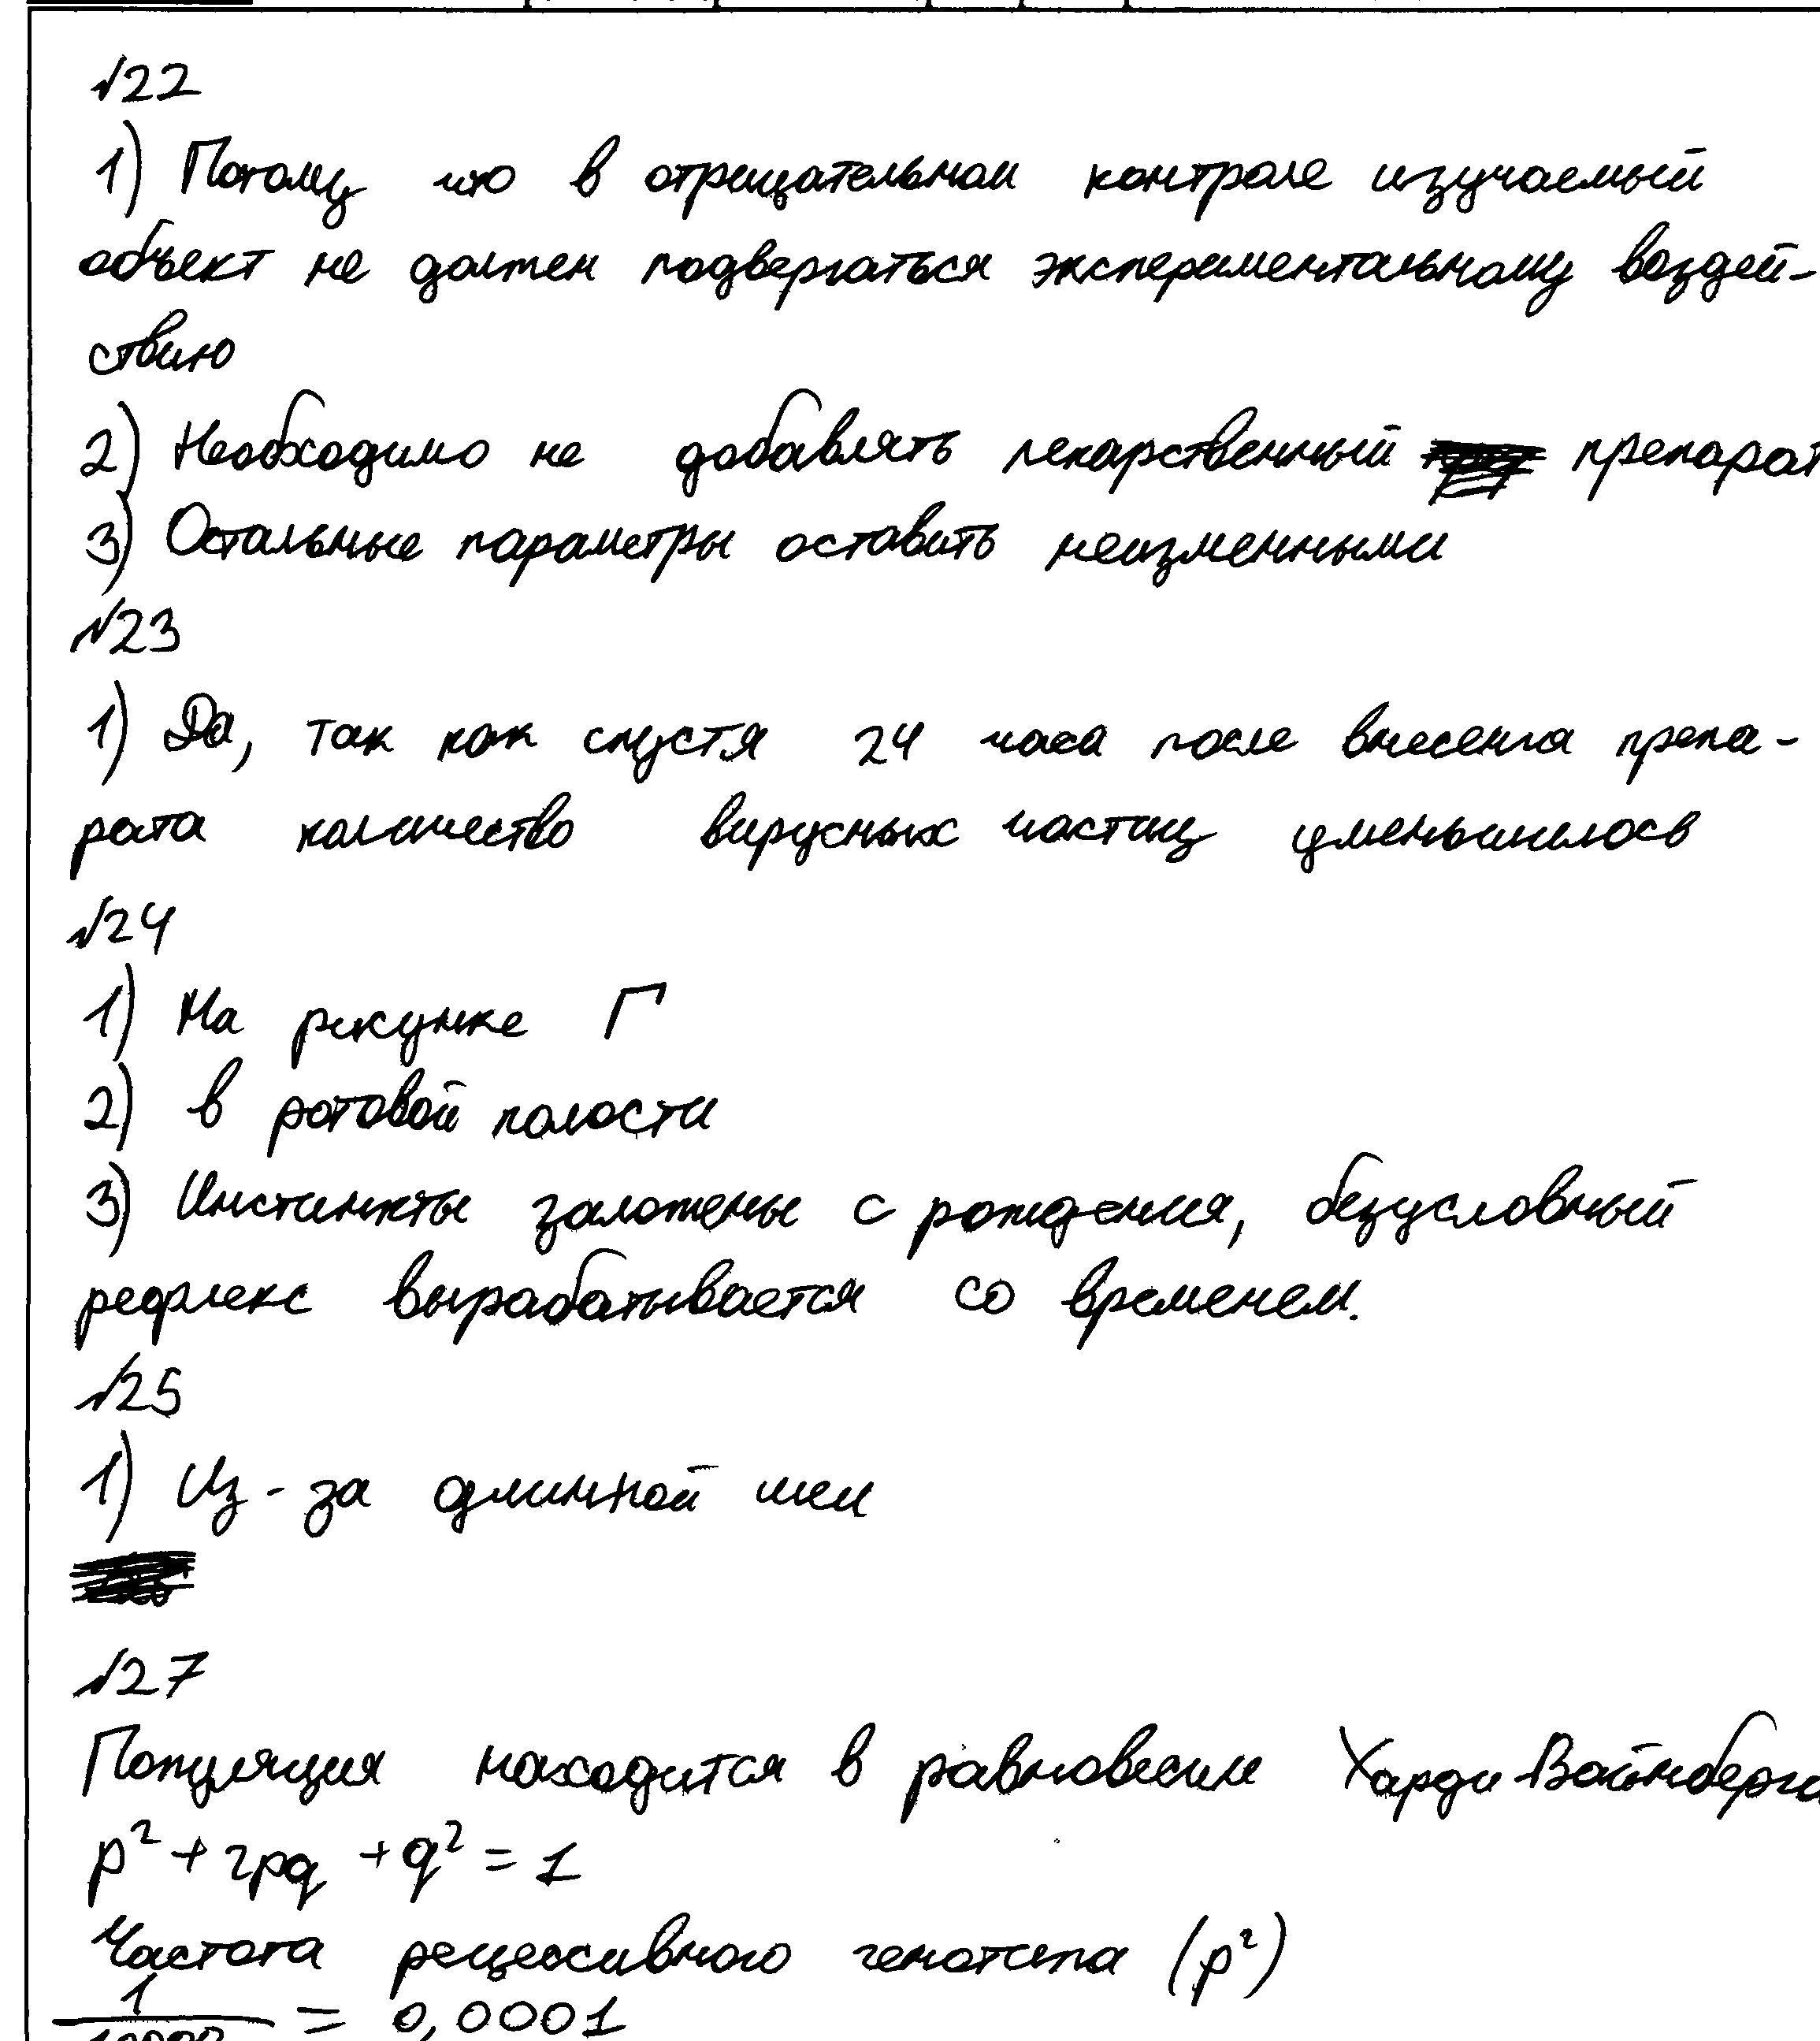 №22
1) Потому что в отрицательном контроле изучаемый
объект не должен подвергаться экспериментальному воздей-
ствию
2) Необходимо не добавлять лекарственный препарат
3) Остальные параметры оставить неизменными
№23
1) Да, так как спустя 24 часа после внесения препа-
рата количество вирусных частиц уменьшилось
№24
1) На рисунке Г
2) в ротовой полости
3) Инстинкты заложены с рождения, безусловный
рефлекс вырабатывается со временем.
№25
1) Из-за длинной шеи
№27
Популяция находится в равновесии Харди-Вайнберга
p² + 2pq + q² = 1
Частота рецессивного генотипа (p²)
1
= 0,0001